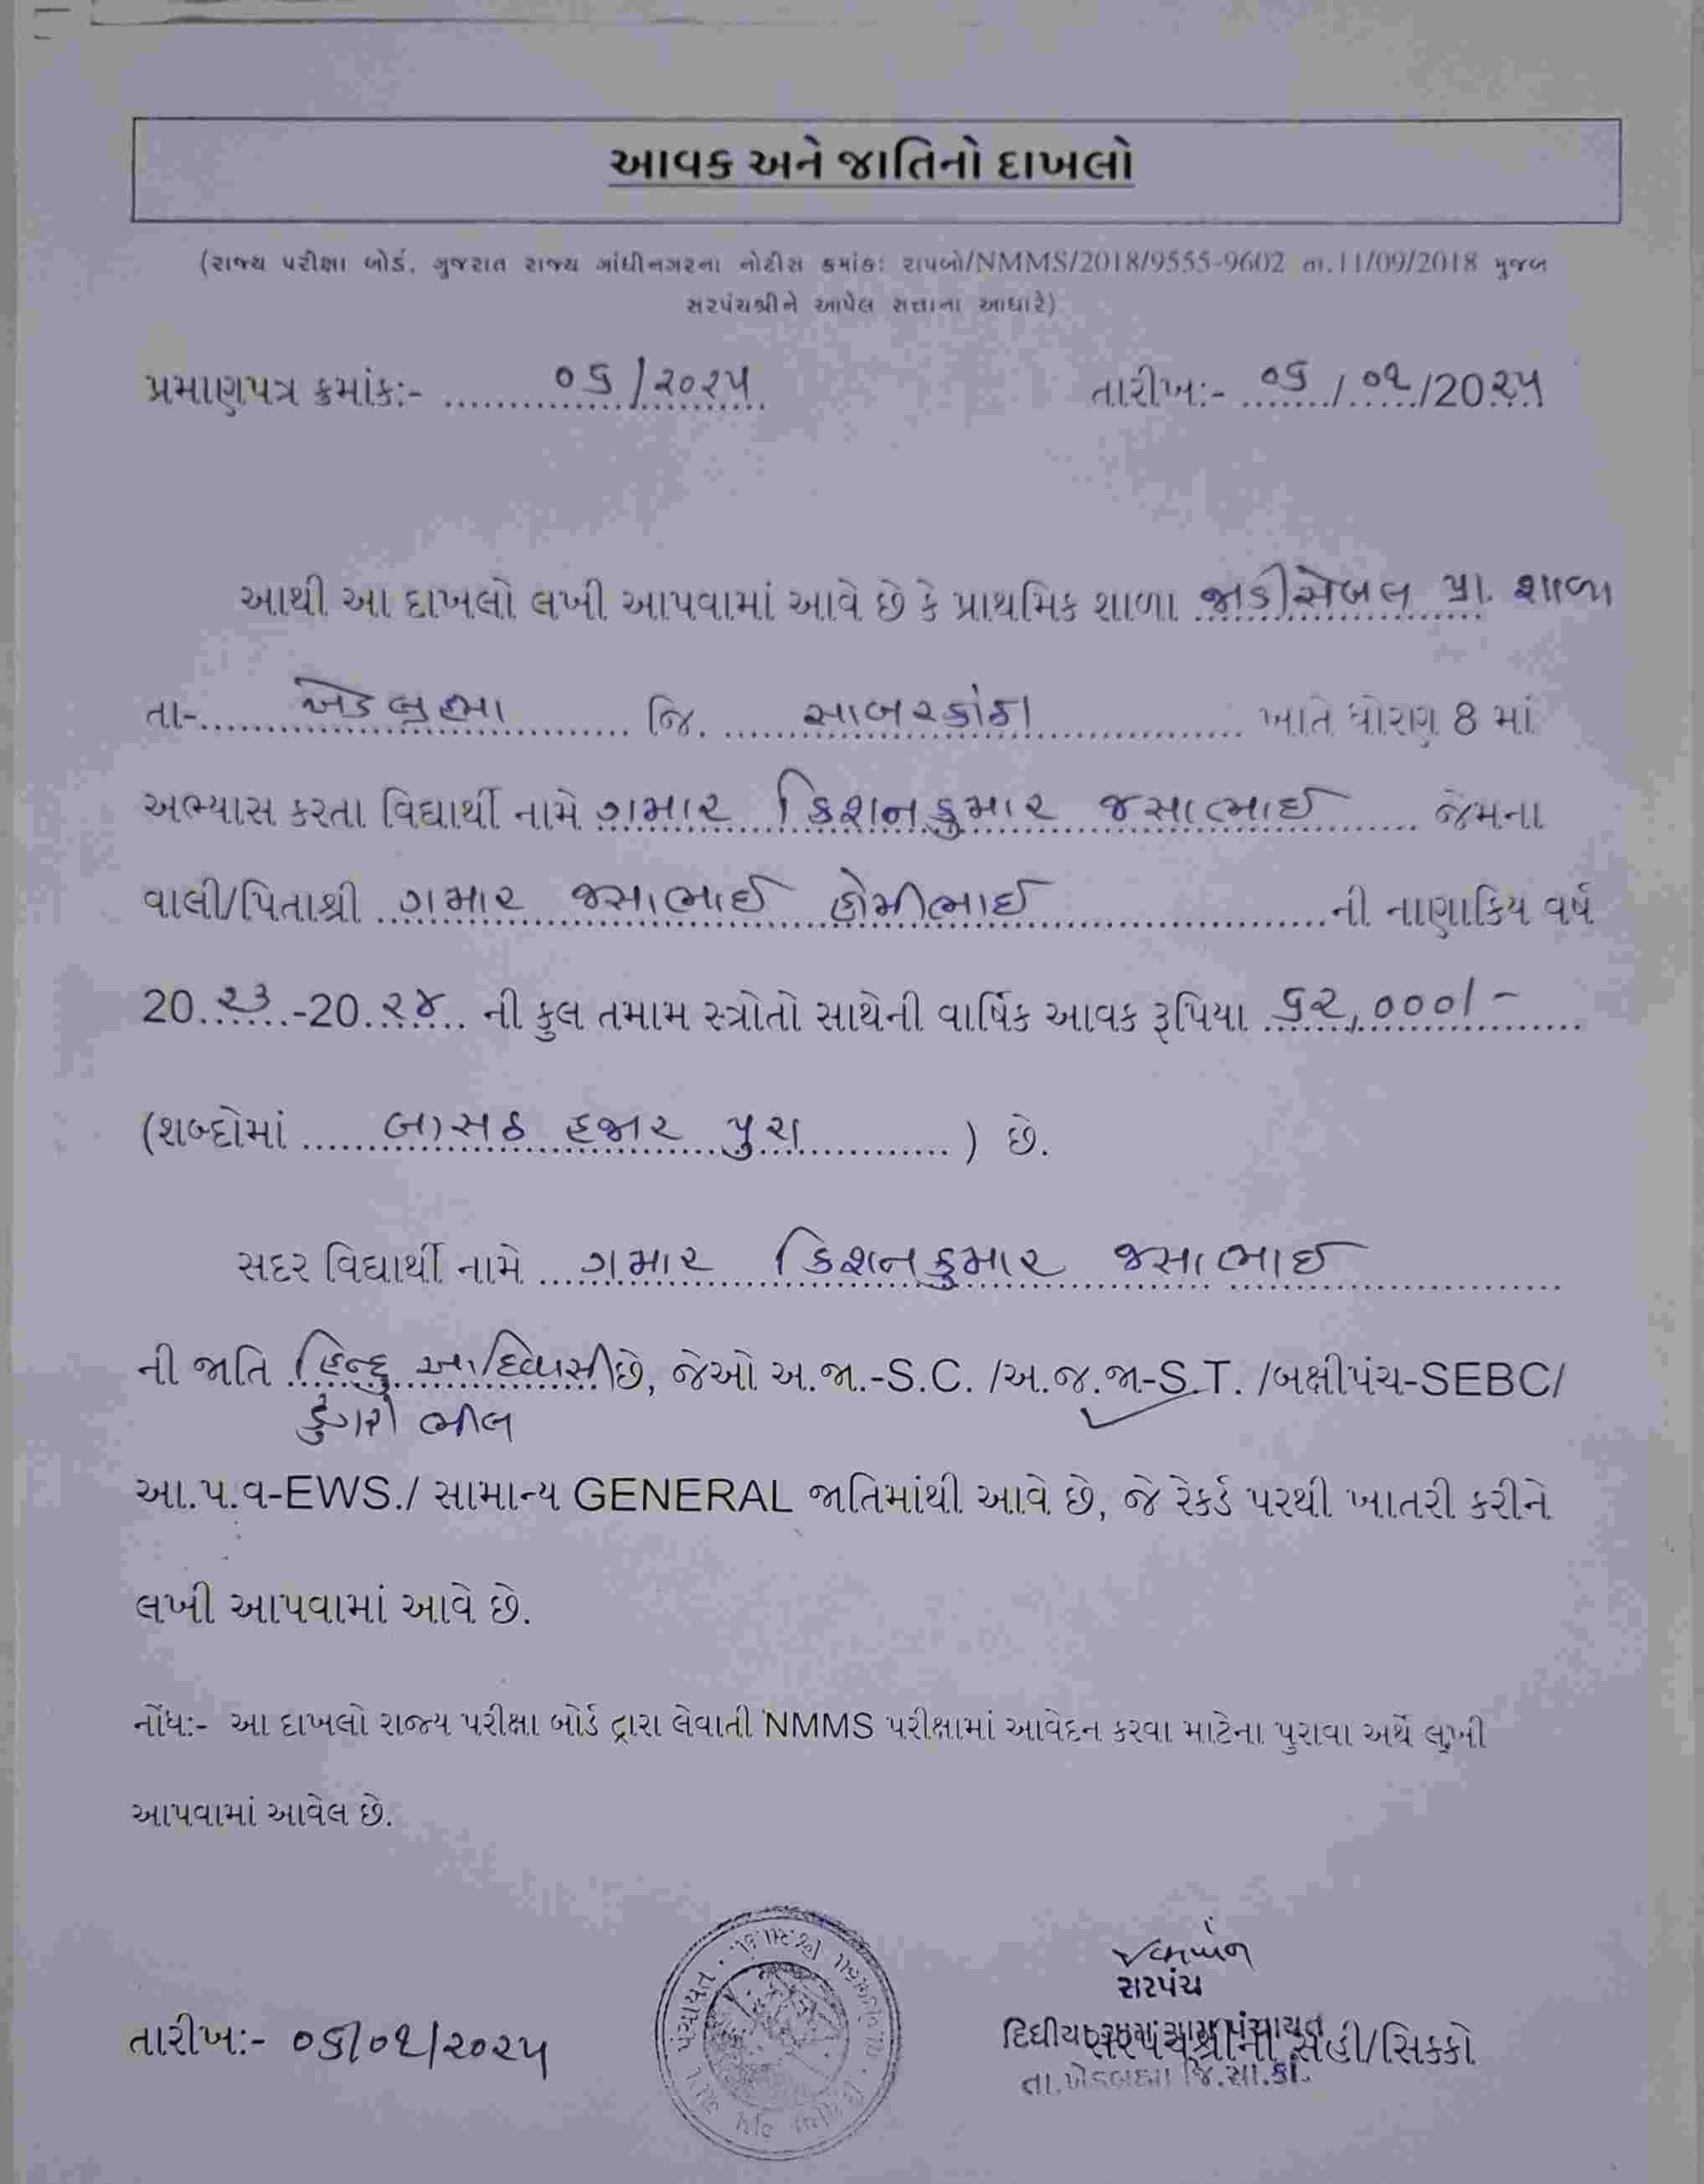 આવક અને જાતિનો દાખલો
(રાજ્ય પરીક્ષા બોર્ડ, ગુજરાત રાજ્ય ગાંધીનગરના નોટીસ ક્રમાંકઃ રાપબો/NMMS/2018/9555-9602 તા.11/09/2018 મુજબ
સરપંચશ્રીને આપેલ સત્તાના આધારે)
પ્રમાણપત્ર ક્રમાંકઃ- ૦૬/૨૦૨૫ તારીખઃ- ૦૬/૦૧/20૨૫
આથી આ દાખલો લખી આપવામાં આવે છે કે પ્રાથમિક શાળા જાડીસેબલ પ્રા. શાળા
તા- ખેડબ્રહ્મા જિ. સાબરકાંઠા ખાતે ધોરણ 8 માં
અભ્યાસ કરતા વિદ્યાર્થી નામે ગમાર કિશનકુમાર જસાભાઈ જેમના
વાલી/પિતાશ્રી ગમાર જસાભાઈ હોમીભાઈ ની નાણાકિય વર્ષ
20૨૩-20૨૪ ની કુલ તમામ સ્ત્રોતો સાથેની વાર્ષિક આવક રૂપિયા ૬૨,૦૦૦/-
(શબ્દોમાં બાસઠ હજાર પુરા) છે.
સદર વિદ્યાર્થી નામે ગમાર કિશનકુમાર જસાભાઈ
ની જાતિ હિન્દુ આદિવાસી છે, જેઓ અ.જા.-S.C. /અ.જ.જા-S.T. /બક્ષીપંચ-SEBC/
ડુંગરી ભીલ
આ.પ.વ-EWS./ સામાન્ય GENERAL જાતિમાંથી આવે છે, જે રેકર્ડ પરથી ખાતરી કરીને
લખી આપવામાં આવે છે.
નોંધઃ- આ દાખલો રાજ્ય પરીક્ષા બોર્ડ દ્વારા લેવાતી NMMS પરીક્ષામાં આવેદન કરવા માટેના પુરાવા અર્થે લખી
આપવામાં આવેલ છે.
સરપંચ
તારીખઃ- ૦૬/૦૧/૨૦૨૫ સરપંચશ્રીની સહી/સિક્કો
તા.ખેડબ્રહ્મા જિ.સા.કાં.